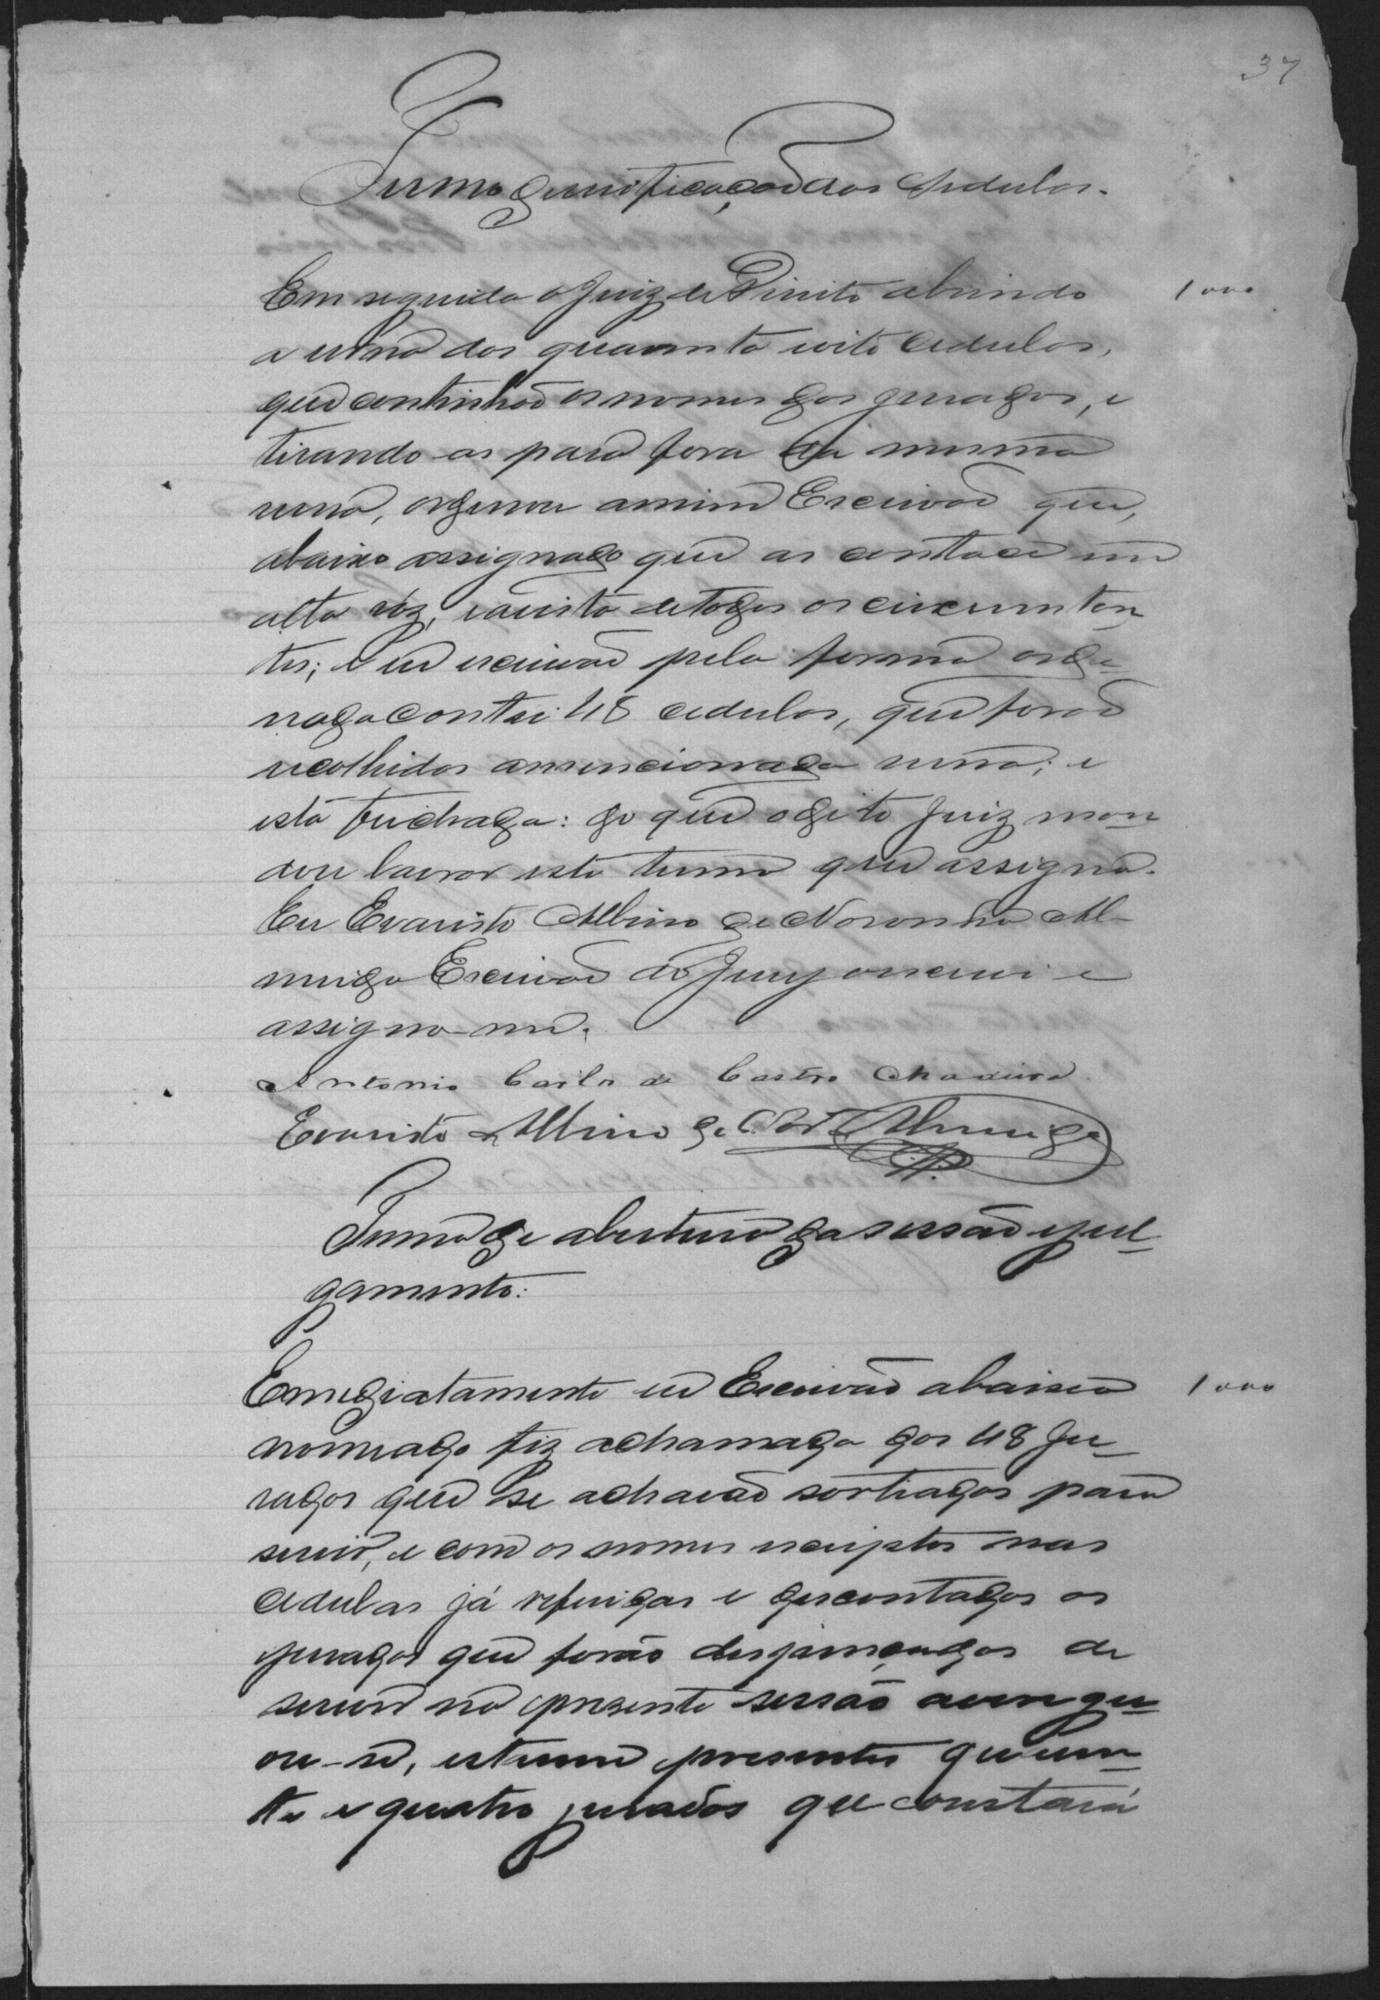 37
Termo de verificação das Cedulas.
Em seguida o Juiz de Direito abrindo 1000
a urna das quarenta e oito cedulas,
que continhão os nomes dos jurados, e
tirando-as para fora da mesma
urna, ordenou a mim Escrivão que,
abaixo assignado que as contace em
alta vóz, e a vista de todos os circumstan
tes; e eu escrivão pela forma orde-
nada contei 48 cedulas, que forão
recolhidas a mencionada urna; e
esta feichada: do que o dito Juiz man
dou lavrar este termo que assigna.
Eu Evaristo Albino de Noronha Al-
meida Escrivão do Jury o escrevi e
assigno-me.
Antonio Carlos de Castro Madeira
Evaristo Albino de Nor.ª Almeida
Termo de abertura da sessão e jul-
gamento.
Emediatamente eu Escrivão abaixo 1000
nomeado fiz a chamada dos 48 Ju-
rados que se achavão sortiados para
servir, e com os nomes escriptos nas
cedulas já referidas e descontados os
jurados que forão despençados de
servir na presente sessão averigu-
ou-se, estarem presentes quaren-
ta e quatro jurados que constará